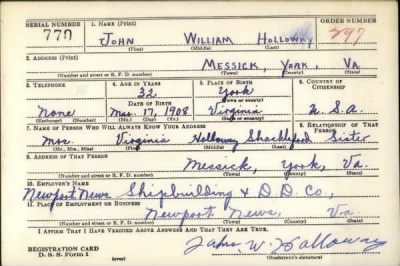 SERIAL NUMBER 1. NAME (Print) ORDER NUMBER
770 JOHN WILLIAM HOLLOWAY 797
(First) (Middle) (Last)
2. ADDRESS (Print)
MESSICK, YORK, VA
(Number and street or R. F. D. number) (Town) (County) (State)
3. TELEPHONE 4. AGE IN YEARS 5. PLACE OF BIRTH 6. COUNTRY OF CITIZENSHIP
32 York
DATE OF BIRTH (Town or county)
None Mar. 17, 1908 Virginia U.S.A.
(Exchange) (Number) (Mo.) (Day) (Yr.) (State or country)
7. NAME OF PERSON WHO WILL ALWAYS KNOW YOUR ADDRESS 8. RELATIONSHIP OF THAT PERSON
Mrs. Virginia Holloway Shackleford Sister
(Mr., Mrs., Miss) (First) (Middle) (Last)
9. ADDRESS OF THAT PERSON
Messick, York, Va.
(Number and street or R. F. D. number) (Town) (County) (State)
10. EMPLOYER'S NAME
Newport News Shipbuilding & D.D. Co.,
11. PLACE OF EMPLOYMENT OR BUSINESS
Newport News, Va.
(Number and street or R. F. D. number) (Town) (County) (State)
I AFFIRM THAT I HAVE VERIFIED ABOVE ANSWERS AND THAT THEY ARE TRUE.
REGISTRATION CARD
D. S. S. Form 1 (over) John W. Holloway
(Registrant's signature)